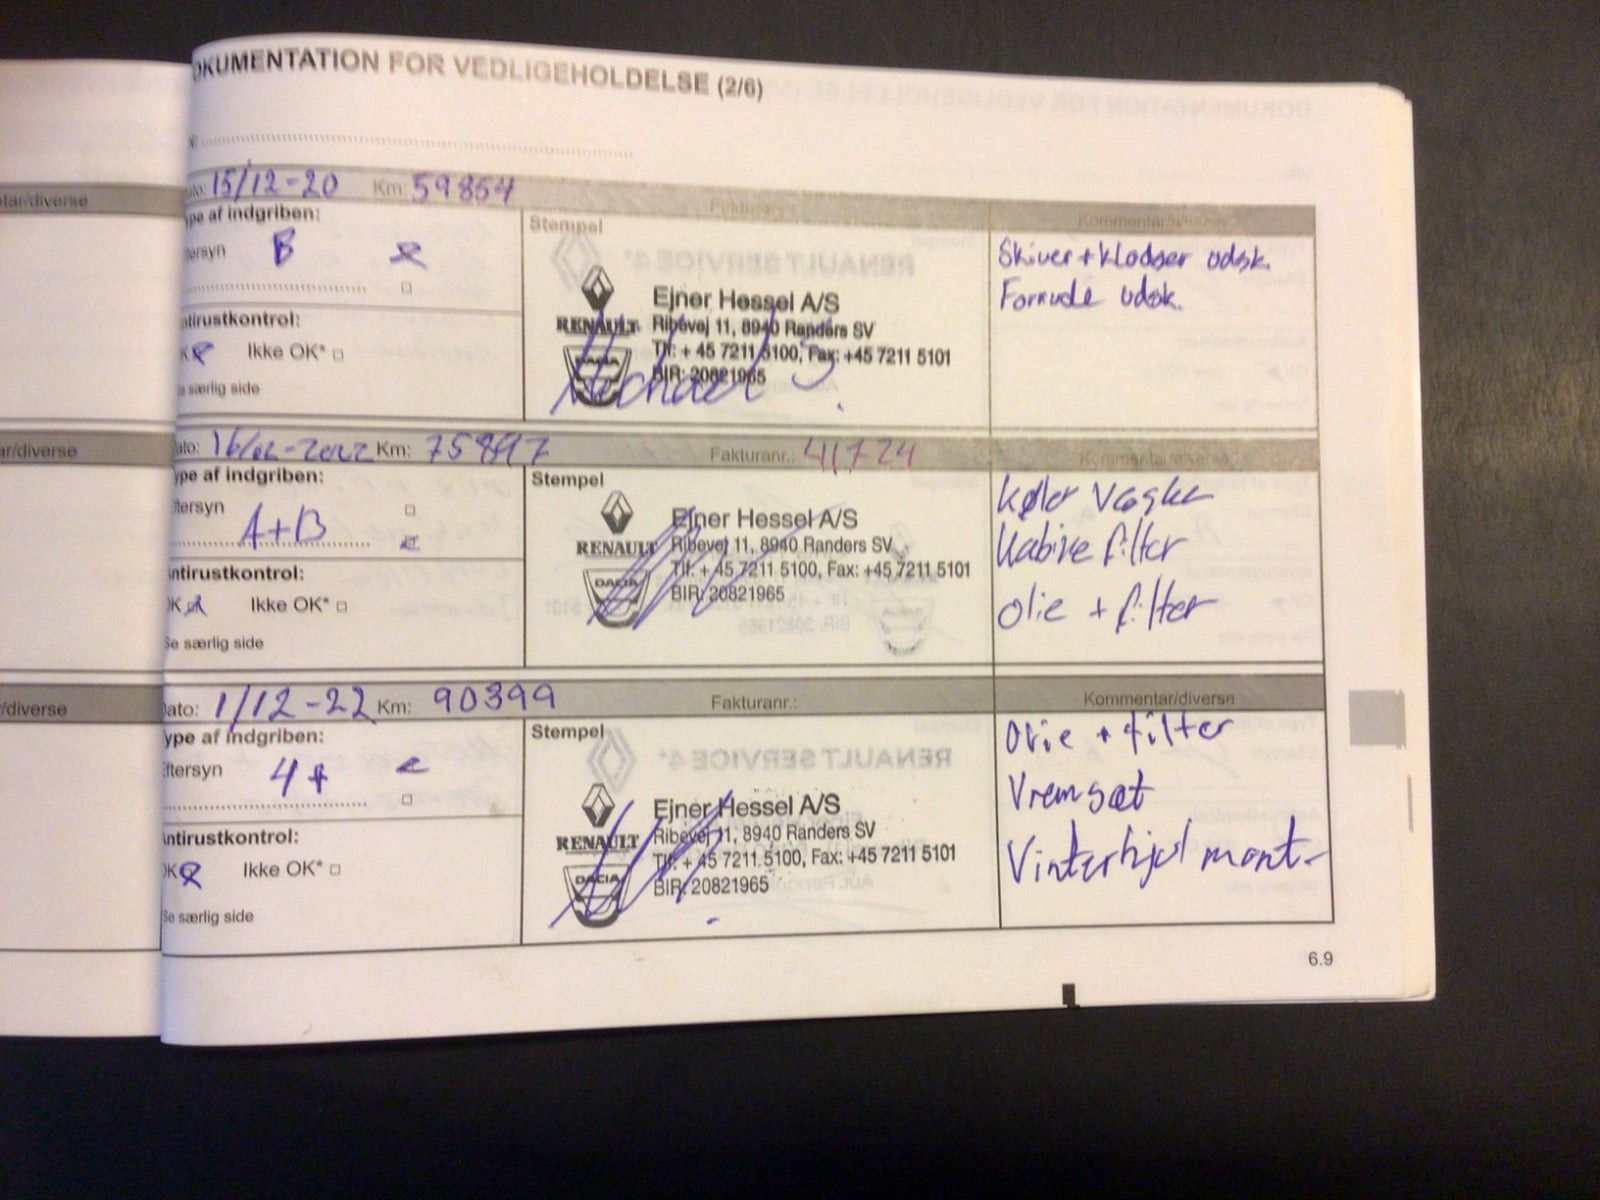 OKUMENTATION FOR VEDLIGEHOLDELSE (2/6)
tar/diverse
ato: 15/12-20 Km: 59854 Fakturanr.: Kommentar/diverse
ype af indgriben:
tersyn B
ntirustkontrol:
K Ikke OK*
e særlig side
Stempel
Ejner Hessel A/S
RENAULT Ribevej 11, 8940 Randers SV
Tlf: + 45 7211 5100, Fax: +45 7211 5101
DACIA BIR: 20821965
Skiver + klodser udsk.
Forrude udsk.
ar/diverse
ato: 16/02-2022 Km: 75897 Fakturanr.: 41724 Kommentar/diverse
ype af indgriben:
ftersyn
A+B
ntirustkontrol:
OK Ikke OK*
Se særlig side
Stempel
Ejner Hessel A/S
RENAULT Ribevej 11, 8940 Randers SV
Tlf: + 45 7211 5100, Fax: +45 7211 5101
DACIA BIR: 20821965
Køler Væske
Kabine filter
olie + filter
/diverse
Dato: 1/12-22 Km: 90399 Fakturanr.: Kommentar/diverse
ype af indgriben:
ftersyn 4+
ntirustkontrol:
OK Ikke OK*
Se særlig side
Stempel
Ejner Hessel A/S
RENAULT Ribevej 11, 8940 Randers SV
Tlf: + 45 7211 5100, Fax: +45 7211 5101
DACIA BIR: 20821965
Olie + filter
Vremsæt
Vinterhjul mont-
6.9